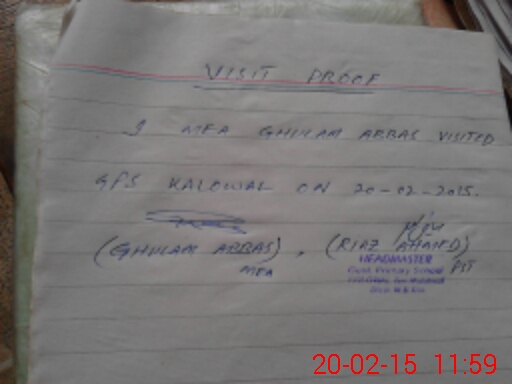 VISIT PROOF
I MEA GHULAM ABBAS VISITED
GPS KALOWAL ON 20-02-2015.
(GHULAM ABBAS), (RIAZ AHMED)
MEA PST
HEADMASTER
Govt. Primary School
20-02-15 11:59